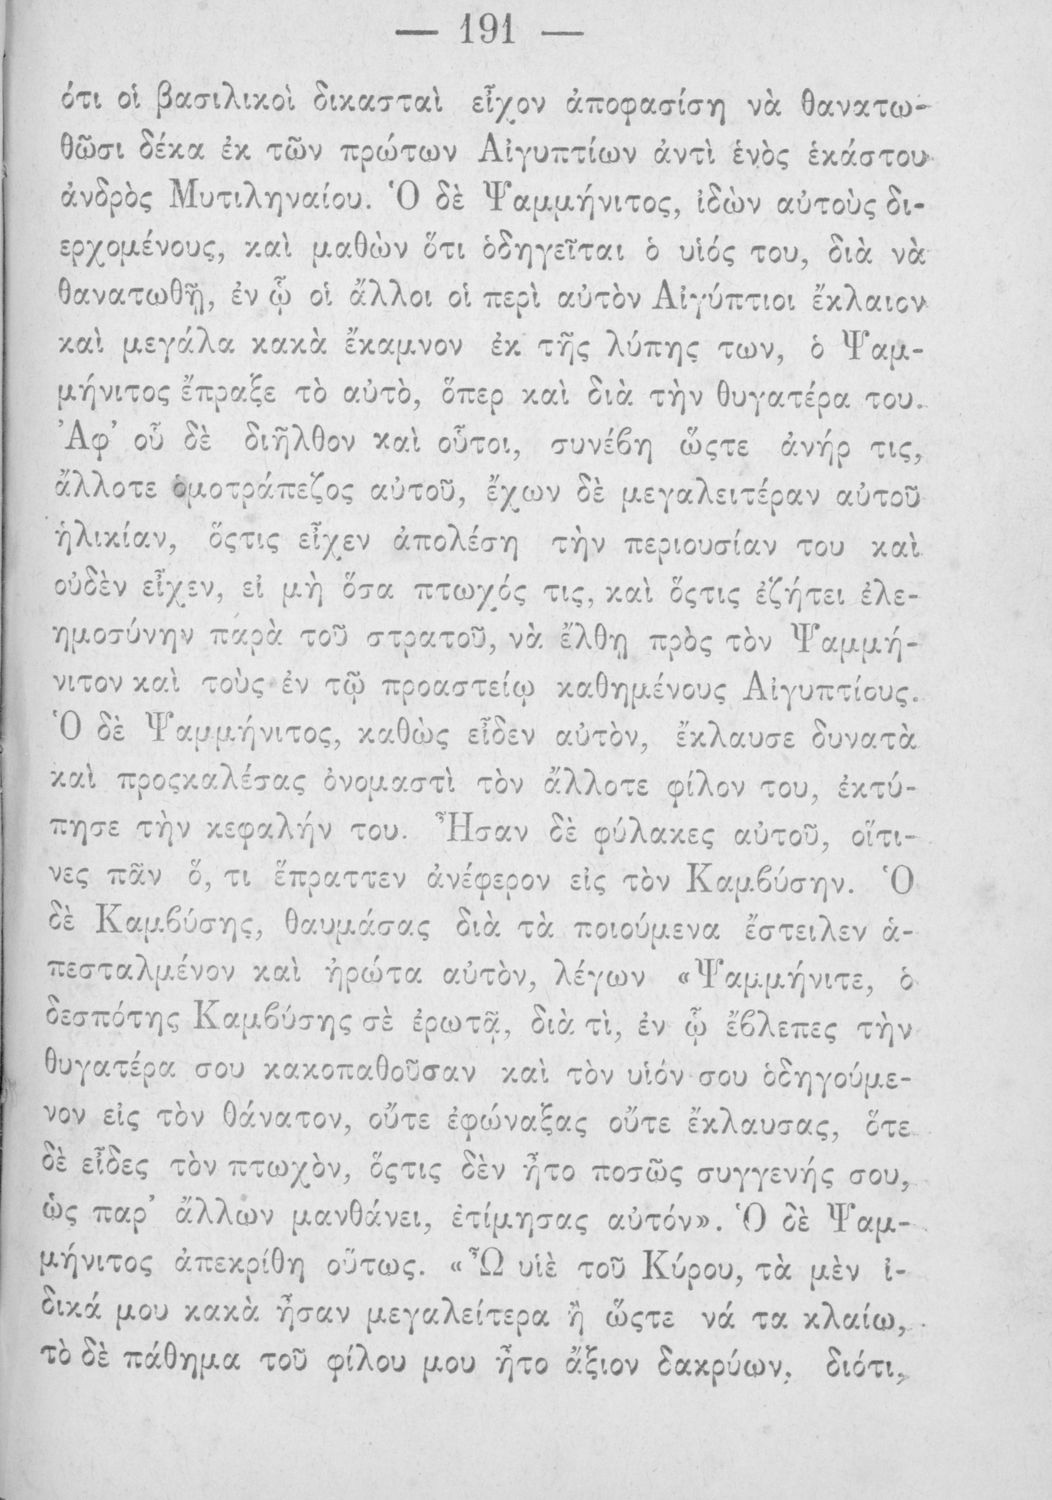 — 191 —
ὁτι οἱ βασιλικοὶ δικασταὶ εἶχον ἀποφασίση νὰ θανατω-
θῶσι δέκα ἐκ τῶν πρώτων Αἰγυπτίων ἀντὶ ἑνὸς ἑκάστου
ἀνδρὸς Μυτιληναίου. Ὁ δὲ Ψαμμήνιτος, ἰδὼν αὐτοὺς δι-
ερχομένους, καὶ μαθὼν ὅτι ὁδηγεῖται ὁ υἱός του, διὰ νὰ
θανατωθῇ, ἐν ᾧ οἱ ἄλλοι οἱ περὶ αὐτὸν Αἰγύπτιοι ἔκλαιον
καὶ μεγάλα κακὰ ἔκαμνον ἐκ τῆς λύπης των, ὁ Ψαμ-
μήνιτος ἔπραξε τὸ αὐτὸ, ὅπερ καὶ διὰ τὴν θυγατέρα του.
Ἀφ’ οὗ δὲ διῆλθον καὶ οὗτοι, συνέβη ὥςτε ἀνήρ τις,
ἄλλοτε ὁμοτράπεζος αὐτοῦ, ἔχων δὲ μεγαλειτέραν αὐτοῦ
ἡλικίαν, ὅςτις εἶχεν ἀπολέση τὴν περιουσίαν του καὶ
οὐδὲν εἶχεν, εἰ μὴ ὅσα πτωχός τις, καὶ ὅςτις ἐζήτει ἐλε-
ημοσύνην παρὰ τοῦ στρατοῦ, νὰ ἔλθῃ πρὸς τὸν Ψαμμή-
νιτον καὶ τοὺς ἐν τῷ προαστείῳ καθημένους Αἰγυπτίους.
Ὁ δὲ Ψαμμήνιτος, καθὼς εἶδεν αὐτὸν, ἔκλαυσε δυνατὰ
καὶ προςκαλέσας ὀνομαστὶ τὸν ἄλλοτε φίλον του, ἐκτύ-
πησε τὴν κεφαλήν του. Ἦσαν δὲ φύλακες αὐτοῦ, οἵτι-
νες πᾶν ὅ, τι ἔπραττεν ἀνέφερον εἰς τὸν Καμβύσην. Ὁ
δὲ Καμβύσης, θαυμάσας διὰ τὰ ποιούμενα ἔστειλεν ἀ-
πεσταλμένον καὶ ἠρώτα αὐτὸν, λέγων «Ψαμμήνιτε, ὁ
δεσπότης Καμβύσης σὲ ἐρωτᾷ, διὰ τὶ, ἐν ᾧ ἔβλεπες τὴν
θυγατέρα σου κακοπαθοῦσαν καὶ τὸν υἱόν σου ὁδηγούμε-
νον εἰς τὸν θάνατον, οὔτε ἐφώναξας οὔτε ἔκλαυσας, ὅτε
δὲ εἶδες τὸν πτωχὸν, ὅςτις δὲν ἦτο ποσῶς συγγενής σου,
ὡς παρ’ ἄλλων μανθάνει, ἐτίμησας αὐτόν». Ὁ δὲ Ψαμ-
μήνιτος ἀπεκρίθη οὕτως. «Ὦ υἱὲ τοῦ Κύρου, τὰ μὲν ἰ-
δικά μου κακὰ ἦσαν μεγαλείτερα ἢ ὥςτε νά τα κλαίω,
τὸ δὲ πάθημα τοῦ φίλου μου ἦτο ἄξιον δακρύων, διότι,